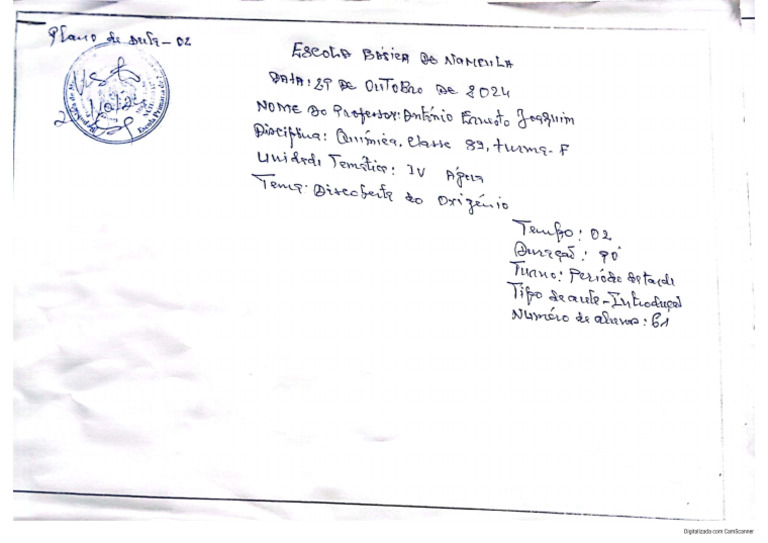 Plano de Aula - 02
Escola Básica de Namcula
DATA: 29 de Outubro de 2024
Nome do Professor: António Ernesto Joaquim
Disciplina: Química, Classe 8ª, turma - F
Unidade Temática: IV Água
Tema: Discoberta do Oxigénio
Tempo: 02
Duração: 90'
Turno: Período de tarde
Tipo de aula - Introduçaõ
Numéro de alunos: 61
Visto
Digitalizada com CamScanner